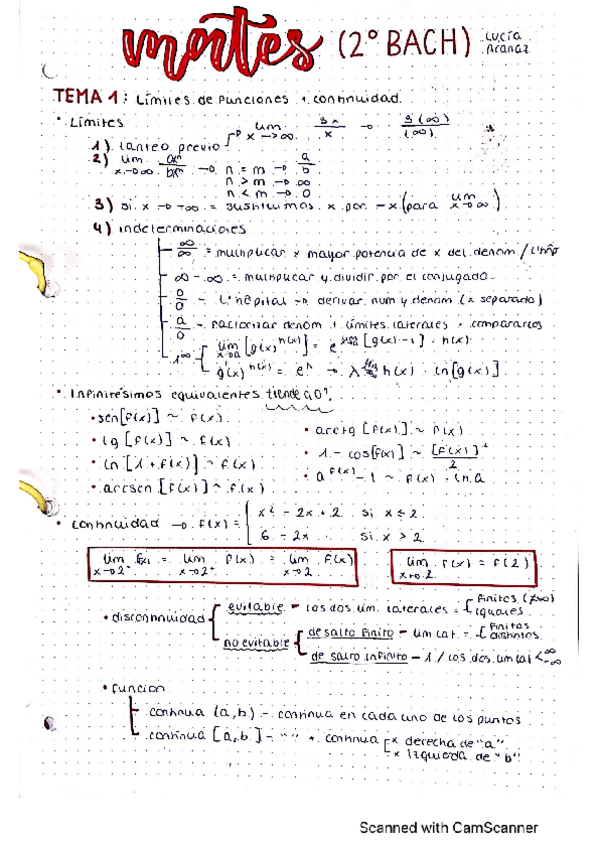 mates (2º BACH) Lucía Aranaz
TEMA 1: Límites de funciones y continuidad.
• Límites
1) tanteo previo → lim x→∞ 3x/x → 3(∞)/(∞)
2) lim x→∞ aⁿ/bᵐ → n = m → a/b
n > m → ∞
n < m → 0
3) si x → -∞ = sustituimos x por -x (para lim x→∞)
4) indeterminaciones
∞/∞ = multiplicar x mayor potencia de x del denom / L'hôp
∞ - ∞ = multiplicar y dividir por el conjugado
0/0 - L'hôpital → derivar num y denom (x separado)
a/0 - factorizar denom y límites laterales + compararlos
1^∞ lim x→a [g(x)]^h(x) = e^lim [g(x)-1] · h(x)
g(x)^h(x) = e^λ → λ = lim h(x) · ln[g(x)]
• Infinitésimos equivalentes tiende a 0!
• sen[f(x)] ~ f(x)
• arctg [f(x)] ~ f(x)
• tg [f(x)] ~ f(x)
• 1 - cos[f(x)] ~ [f(x)]²/2
• ln [1 + f(x)] ~ f(x)
• a^f(x) - 1 ~ f(x) · ln a
• arcsen [f(x)] ~ f(x)
• continuidad → f(x) = { x² - 2x + 2 si x ≤ 2
6 - 2x si x > 2
lim x→2⁻ f(x) = lim x→2⁺ f(x) = lim x→2 f(x)
lim x→2 f(x) = f(2)
• discontinuidad
evitable - los dos lim. laterales = finitos (≠∞) iguales
no evitable
de salto finito - lim lat. = finitos distintos
de salto infinito - 1 / los dos lim lat < ∞ -∞
• función
continua (a,b) - continua en cada uno de los puntos
continua [a,b] - " " + continua x derecha de "a"
x izquierda de "b"
Scanned with CamScanner